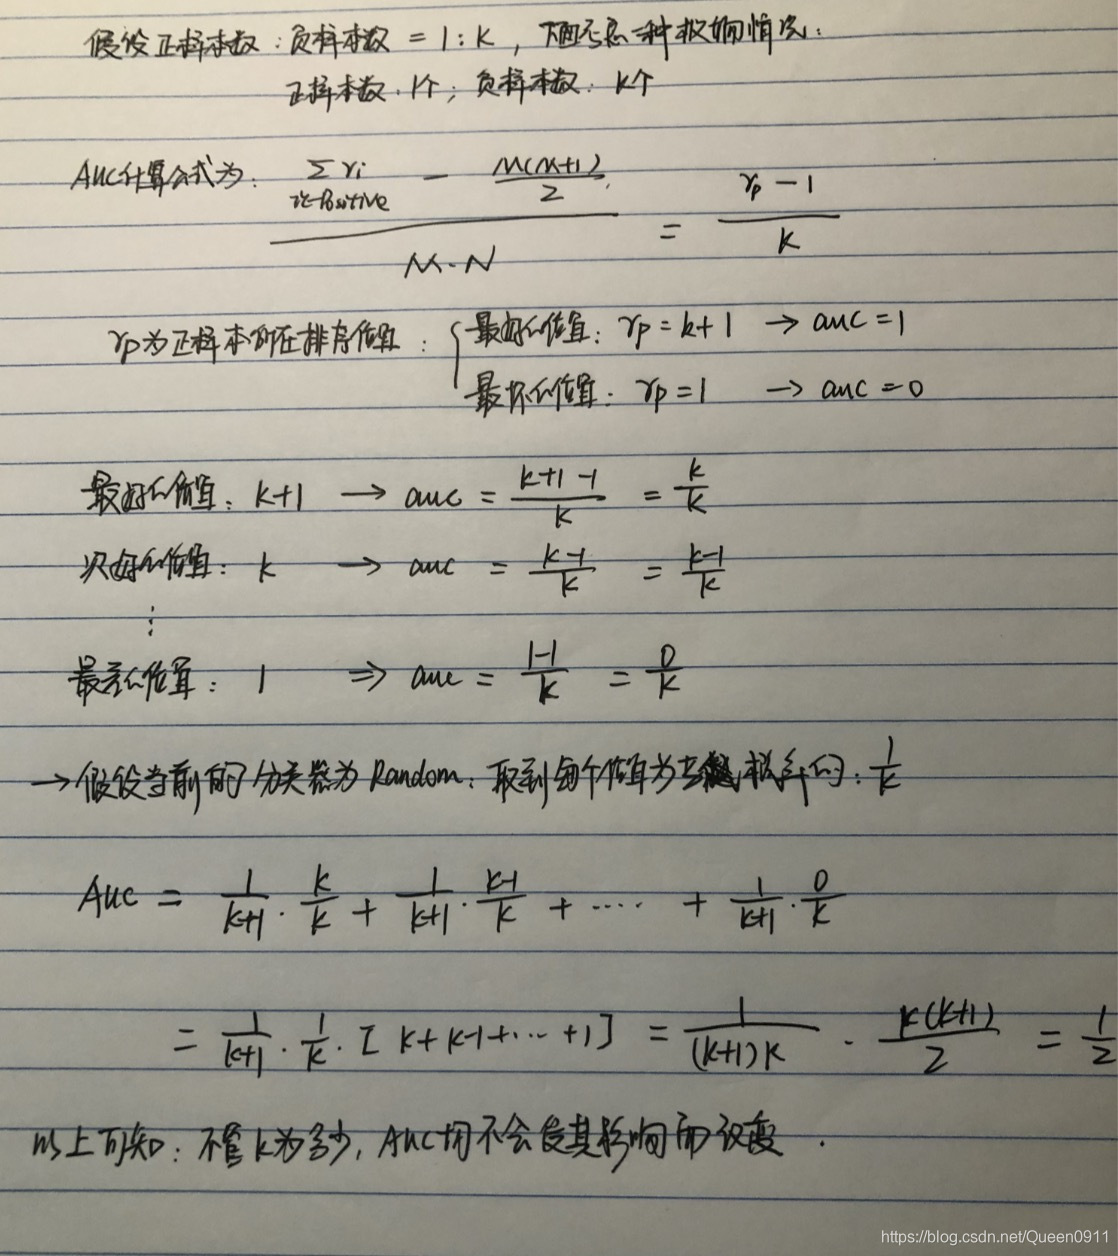 假设正样本数:负样本数 = 1:K, 下面考虑一种极端情况:
正样本数:1个; 负样本数:K个
AUC计算公式为: (∑ ri i∈Positive − M(M+1)/2) / M·N = (rp − 1) / k
rp为正样本所在排序位置: { 最好的位置: rp = k+1 → auc = 1
最坏的位置: rp = 1 → auc = 0
最好的位置: k+1 → auc = (k+1−1)/k = k/k
次好的位置: k → auc = (k−1)/k = (k−1)/k
⋮
最差的位置: 1 ⇒ auc = (1−1)/k = 0/k
→ 假设当前的分类器为Random: 取到每个位置为 概率的: 1/k
AUC = 1/(k+1) · k/k + 1/(k+1) · (k−1)/k + ···· + 1/(k+1) · 0/k
= 1/(k+1) · 1/k · [k+k−1+···+1] = 1/((k+1)k) · k(k+1)/2 = 1/2
以上可知: 不管k为多少, AUC均不会受其影响而改变.
https://blog.csdn.net/Queen0911